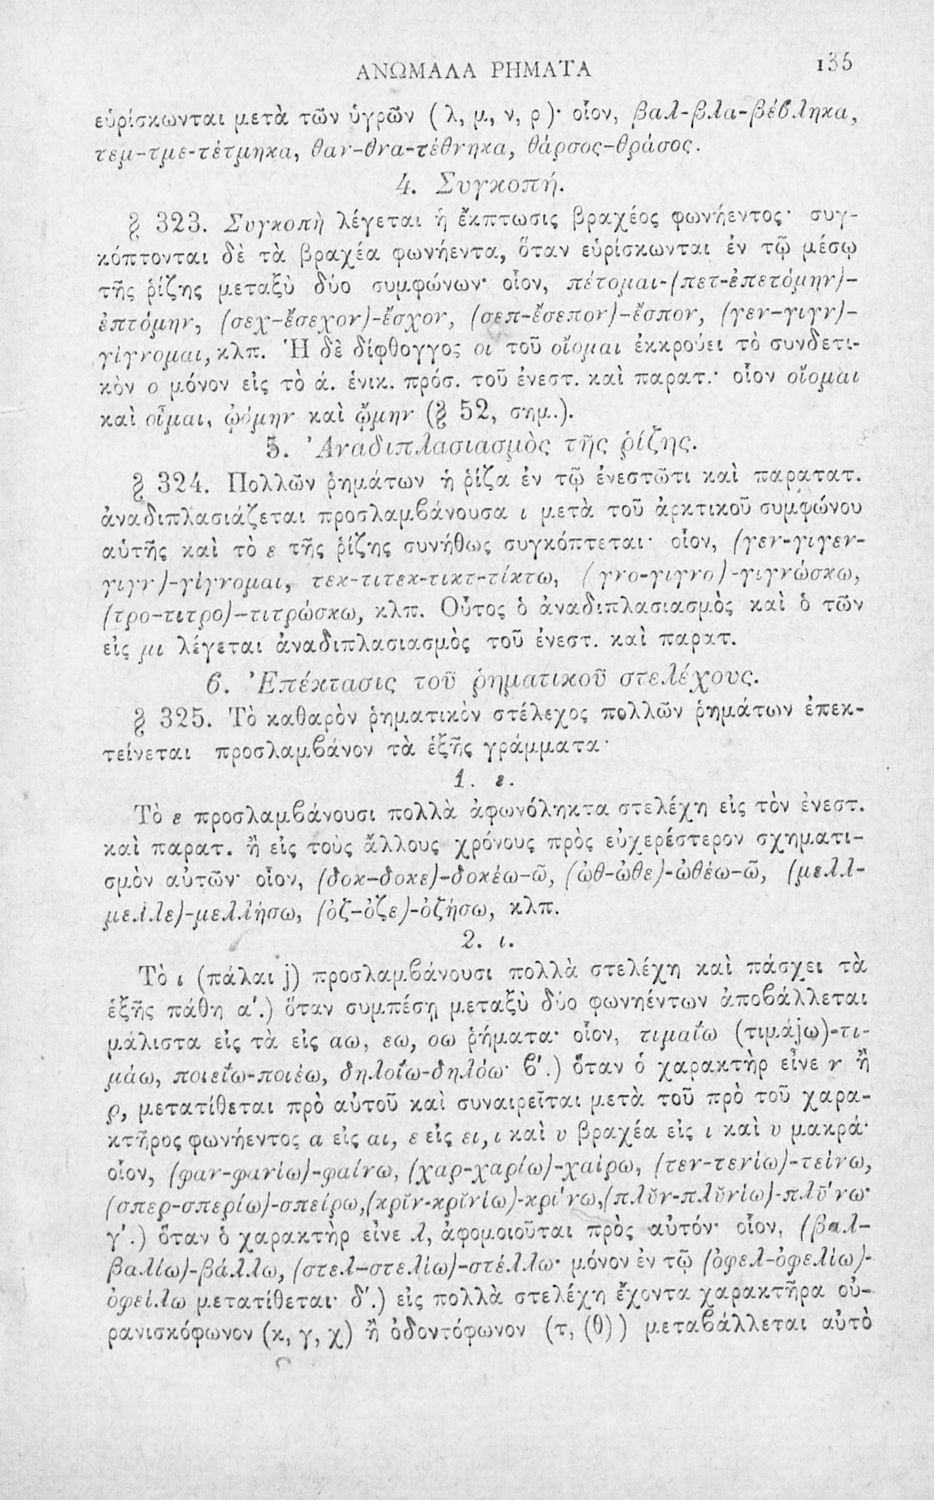 ΑΝΩΜΑΛΑ ΡΗΜΑΤΑ 135
εὑρίσκωνται μετὰ τῶν ὑγρῶν (λ, μ, ν, ρ)· οἷον, βαλ-βλα-βέβληκα,
τεμ-τμε-τέτμηκα, θαν-θνα-τέθνηκα, θάρσος-θράσος.
4. Συγκοπή.
§ 323. Συγκοπὴ λέγεται ἡ ἔκπτωσις βραχέος φωνήεντος· συγ-
κόπτονται δὲ τὰ βραχέα φωνήεντα, ὅταν εὑρίσκωνται ἐν τῷ μέσῳ
τῆς ῥίζης μεταξὺ δύο συμφώνων· οἷον, πέτομαι-(πετ-ἐπετόμην)-
ἐπτόμην, (σεχ-ἔσεχον)-ἔσχον, (σεπ-ἔσεπον)-ἔσπον, (γεν-γιγν)-
γίγνομαι, κλπ. Ἡ δὲ δίφθογγος οι τοῦ οἴομαι ἐκκρούει τὸ συνδετι-
κὸν ο μόνον εἰς τὸ ά. ἑνικ. πρόσ. τοῦ ἐνεστ. καὶ παρατ.· οἷον οἴομαι
καὶ οἶμαι, ᾠόμην καὶ ᾤμην (§ 52, σημ.).
5. Ἀναδιπλασιασμὸς τῆς ῥίζης.
§ 324. Πολλῶν ῥημάτων ἡ ῥίζα ἐν τῷ ἐνεστῶτι καὶ παρατατ.
ἀναδιπλασιάζεται προσλαμβάνουσα ι μετὰ τοῦ ἀρκτικοῦ συμφώνου
αὑτῆς καὶ τὸ ε τῆς ῥίζης συνήθως συγκόπτεται· οἷον, (γεν-γιγεν-
γιγν)-γίγνομαι, τεκ-τιτεκ-τικτ-τίκτω, (γνο-γιγνο)-γιγνώσκω,
(τρο-τιτρο)-τιτρώσκω, κλπ. Οὗτος ὁ ἀναδιπλασιασμὸς καὶ ὁ τῶν
εἰς μι λέγεται ἀναδιπλασιασμὸς τοῦ ἐνεστ. καὶ παρατ.
6. Ἐπέκτασις τοῦ ῥηματικοῦ στελέχους.
§ 325. Τὸ καθαρὸν ῥηματικὸν στέλεχος πολλῶν ῥημάτων ἐπεκ-
τείνεται προσλαμβάνον τὰ ἑξῆς γράμματα·
1. ε.
Τὸ ε προσλαμβάνουσι πολλὰ ἀφωνόληκτα στελέχη εἰς τὸν ἐνεστ.
καὶ παρατ. ἢ εἰς τοὺς ἄλλους χρόνους πρὸς εὐχερέστερον σχηματι-
σμὸν αὐτῶν· οἷον, (δοκ-δοκε)-δοκέω-ῶ, (ὠθ-ὠθε)-ὠθέω-ῶ, (μελλ-
μελλε)-μελλήσω, (ὀζ-ὀζε)-ὀζήσω, κλπ.
2. ι.
Τὸ ι (πάλαι j) προσλαμβάνουσι πολλὰ στελέχη καὶ πάσχει τὰ
ἑξῆς πάθη α΄.) ὅταν συμπέσῃ μεταξὺ δύο φωνηέντων ἀποβάλλεται
μάλιστα εἰς τὰ εἰς αω, εω, οω ῥήματα· οἷον, τιμαΐω (τιμάjω)-τι-
μάω, ποιεΐω-ποιέω, δηλοΐω-δηλόω· β΄.) ὅταν ὁ χαρακτὴρ εἶνε ν ἢ
ρ, μετατίθεται πρὸ αὐτοῦ καὶ συναιρεῖται μετὰ τοῦ πρὸ τοῦ χαρα-
κτῆρος φωνήεντος α εἰς αι, ε εἰς ει, ι καὶ υ βραχέα εἰς ι καὶ υ μακρά·
οἷον, (φαν-φανίω)-φαίνω, (χαρ-χαρίω)-χαίρω, (τεν-τενίω)-τείνω,
(σπερ-σπερίω)-σπείρω, (κρῐν-κρῐνίω)-κρί̄νω, (πλῠν-πλῠνίω)-πλύ̄νω·
γ΄.) ὅταν ὁ χαρακτὴρ εἶνε λ, ἀφομοιοῦται πρὸς αὐτόν· οἷον, (βαλ-
βαλίω)-βάλλω, (στελ-στελίω)-στέλλω· μόνον ἐν τῷ (ὀφελ-ὀφελίω)-
ὀφείλω μετατίθεται· δ΄.) εἰς πολλὰ στελέχη ἔχοντα χαρακτῆρα οὐ-
ρανισκόφωνον (κ, γ, χ) ἢ ὀδοντόφωνον (τ, (θ)) μεταβάλλεται αὐτὸ